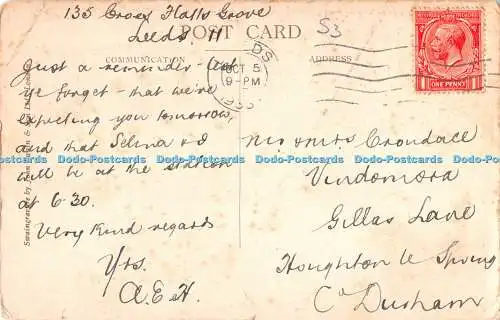 135 Cross Flatts Grove
Leeds. 11
POST CARD
COMMUNICATION
ADDRESS
53
LEEDS
OCT 5
9-PM
ONE PENNY
Just a reminder - lest
we forget - that we're
expecting you tomorrow,
and that Selina & I
will be at the station
at 6-30.
Very kind regards
Yrs.
A.E.H.
Crondace
Vindomora
Gillas Lane
Houghton le Spring
Co Durham
Dodo-Postcards Dodo-Postcards Dodo-Postcards Dodo-Postcards Dodo-Postcards Dodo-Postcards